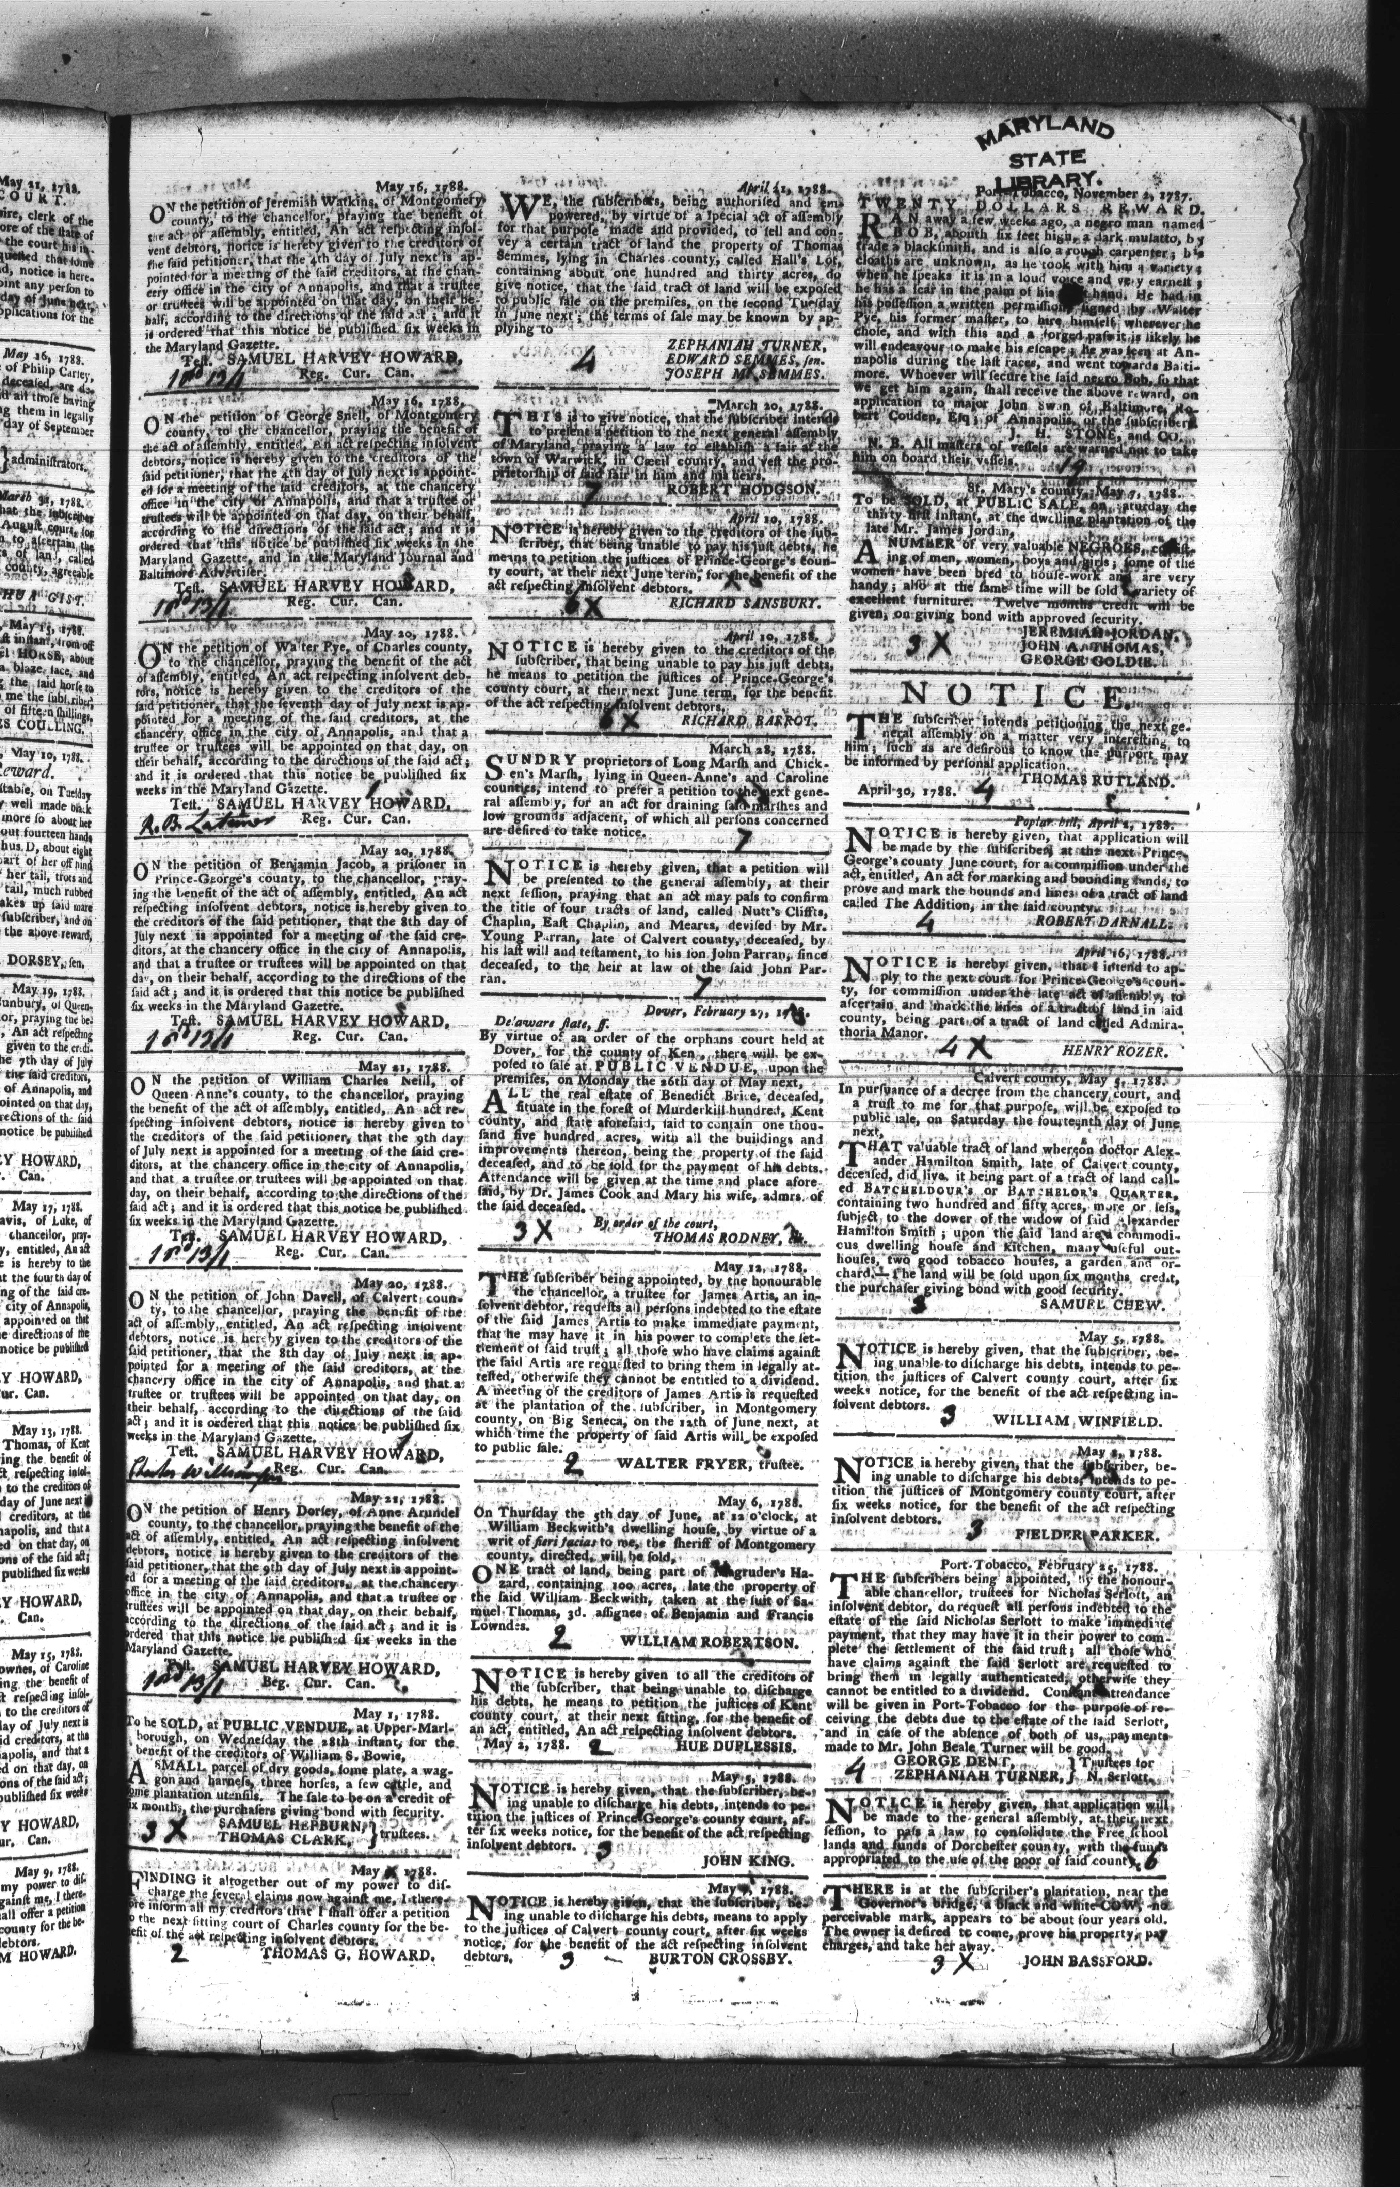 MARYLAND
STATE
LIBRARY.
May 16, 1788.
ON the petition of Jeremiah Watkins, of Montgomery
county, to the chancellor, praying the benefit of
the act of assembly, entitled, An act respecting insol-
vent debtors, notice is hereby given to the creditors of
the said petitioner, that the 4th day of July next is ap-
pointed for a meeting of the said creditors, at the chan-
cery office in the city of Annapolis, and that a trustee
or trustees will be appointed on that day, on their be-
half, according to the directions of the said act; and it
is ordered that this notice be published six weeks in
the Maryland Gazette.
Test. SAMUEL HARVEY HOWARD,
Reg. Cur. Can.
May 16, 1788.
ON the petition of George Snell, of Montgomery
county, to the chancellor, praying the benefit of
the act of assembly, entitled, An act respecting insolvent
debtors, notice is hereby given to the creditors of the
said petitioner, that the 4th day of July next is appoint-
ed for a meeting of the said creditors, at the chancery
office in the city of Annapolis, and that a trustee or
trustees will be appointed on that day, on their behalf,
according to the directions of the said act; and it is
ordered that this notice be published six weeks in the
Maryland Gazette, and in the Maryland Journal and
Baltimore Advertiser.
Test. SAMUEL HARVEY HOWARD,
Reg. Cur. Can.
May 20, 1788.
ON the petition of Walter Pye, of Charles county,
to the chancellor, praying the benefit of the act
of assembly, entitled, An act respecting insolvent deb-
tors, notice is hereby given to the creditors of the
said petitioner, that the seventh day of July next is ap-
pointed for a meeting of the said creditors, at the
chancery office in the city of Annapolis, and that a
trustee or trustees will be appointed on that day, on
their behalf, according to the directions of the said act;
and it is ordered that this notice be published six
weeks in the Maryland Gazette.
Test. SAMUEL HARVEY HOWARD,
Reg. Cur. Can.
May 20, 1788.
ON the petition of Benjamin Jacob, a prisoner in
Prince-George's county, to the chancellor, pray-
ing the benefit of the act of assembly, entitled, An act
respecting insolvent debtors, notice is hereby given to
the creditors of the said petitioner, that the 8th day of
July next is appointed for a meeting of the said cre-
ditors, at the chancery office in the city of Annapolis,
and that a trustee or trustees will be appointed on that
day, on their behalf, according to the directions of the
said act; and it is ordered that this notice be published
six weeks in the Maryland Gazette.
Test. SAMUEL HARVEY HOWARD,
Reg. Cur. Can.
May 21, 1788.
ON the petition of William Charles Neill, of
Queen Anne's county, to the chancellor, praying
the benefit of the act of assembly, entitled, An act re-
specting insolvent debtors, notice is hereby given to
the creditors of the said petitioner, that the 9th day
of July next is appointed for a meeting of the said cre-
ditors, at the chancery office in the city of Annapolis,
and that a trustee or trustees will be appointed on that
day, on their behalf, according to the directions of the
said act; and it is ordered that this notice be published
six weeks in the Maryland Gazette.
Test. SAMUEL HARVEY HOWARD,
Reg. Cur. Can.
May 20, 1788.
ON the petition of John Davell, of Calvert coun-
ty, to the chancellor, praying the benefit of the
act of assembly, entitled, An act respecting insolvent
debtors, notice is hereby given to the creditors of the
said petitioner, that the 8th day of July next is ap-
pointed for a meeting of the said creditors, at the
chancery office in the city of Annapolis, and that a
trustee or trustees will be appointed on that day, on
their behalf, according to the directions of the said
act; and it is ordered that this notice be published six
weeks in the Maryland Gazette.
Test. SAMUEL HARVEY HOWARD,
Reg. Cur. Can.
May 21, 1788.
ON the petition of Henry Dorsey, of Anne Arundel
county, to the chancellor, praying the benefit of the
act of assembly, entitled, An act respecting insolvent
debtors, notice is hereby given to the creditors of the
said petitioner, that the 9th day of July next is appoint-
ed for a meeting of the said creditors, at the chancery
office in the city of Annapolis, and that a trustee or
trustees will be appointed on that day, on their behalf,
according to the directions of the said act; and it is
ordered that this notice be published six weeks in the
Maryland Gazette.
Test. SAMUEL HARVEY HOWARD,
Beg. Cur. Can.
May 1, 1788.
To be SOLD, at PUBLIC VENDUE, at Upper-Marl-
borough, on Wednesday the 28th instant, for the
benefit of the creditors of William S. Bowie,
A SMALL parcel of dry goods, some plate, a wag-
gon and harness, three horses, a few cattle, and
some plantation utensils. The sale to be on a credit of
six months, the purchasers giving bond with security.
SAMUEL HEPBURN, }
THOMAS CLARK, } trustees.
3 X
May 1788.
FINDING it altogether out of my power to dis-
charge the several claims now against me, I there-
fore inform all my creditors that I shall offer a petition
to the next sitting court of Charles county for the be-
nefit of the act respecting insolvent debtors.
2 THOMAS G. HOWARD.
April 21, 1788.
WE, the subscribers, being authorised and em-
powered, by virtue of a special act of assembly
for that purpose made and provided, to sell and con-
vey a certain tract of land the property of Thomas
Semmes, lying in Charles county, called Hall's Lot,
containing about one hundred and thirty acres, do
give notice, that the said tract of land will be exposed
to public sale on the premises, on the second Tuesday
in June next; the terms of sale may be known by ap-
plying to
ZEPHANIAH TURNER,
4 EDWARD SEMMES, sen.
JOSEPH M. SEMMES.
March 20, 1788.
THIS is to give notice, that the subscriber intends
to present a petition to the next general assembly
of Maryland, praying a law to establish a fair at the
town of Warwick, in Cæcil county, and vest the pro-
prietorship of said fair in him and his heirs.
7 ROBERT HODGSON.
April 10, 1788.
NOTICE is hereby given to the creditors of the sub-
scriber, that being unable to pay his just debts, he
means to petition the justices of Prince-George's coun-
ty court, at their next June term, for the benefit of the
act respecting insolvent debtors.
6 X RICHARD SANSBURY.
April 10, 1788.
NOTICE is hereby given to the creditors of the
subscriber, that being unable to pay his just debts,
he means to petition the justices of Prince-George's
county court, at their next June term, for the benefit
of the act respecting insolvent debtors.
6 X RICHARD BARROT.
March 28, 1788.
SUNDRY proprietors of Long Marsh and Chick-
en's Marsh, lying in Queen-Anne's and Caroline
counties, intend to prefer a petition to the next gene-
ral assembly, for an act for draining said marshes and
low grounds adjacent, of which all persons concerned
are desired to take notice.
7
NOTICE is hereby given, that a petition will
be presented to the general assembly, at their
next session, praying that an act may pass to confirm
the title of four tracts of land, called Nutt's Cliffts,
Chaplin, East Chaplin, and Meares, devised by Mr.
Young Parran, late of Calvert county, deceased, by
his last will and testament, to his son John Parran, since
deceased, to the heir at law of the said John Par-
ran.
7
Dover, February 27, 1788.
Delaware state, ss.
By virtue of an order of the orphans court held at
Dover, for the county of Kent, there will be ex-
posed to sale at PUBLIC VENDUE, upon the
premises, on Monday the 26th day of May next,
ALL the real estate of Benedict Brice, deceased,
situate in the forest of Murderkill hundred, Kent
county, and state aforesaid, said to contain one thou-
sand five hundred acres, with all the buildings and
improvements thereon, being the property of the said
deceased, and to be sold for the payment of his debts.
Attendance will be given at the time and place afore-
said, by Dr. James Cook and Mary his wife, admrs. of
the said deceased.
By order of the court,
3 X THOMAS RODNEY,
May 12, 1788.
THE subscriber being appointed, by the honourable
the chancellor, a trustee for James Artis, an in-
solvent debtor, requests all persons indebted to the estate
of the said James Artis to make immediate payment,
that he may have it in his power to complete the set-
tlement of said trust; all those who have claims against
the said Artis are requested to bring them in legally at-
tested, otherwise they cannot be entitled to a dividend.
A meeting of the creditors of James Artis is requested
at the plantation of the subscriber, in Montgomery
county, on Big Seneca, on the 12th of June next, at
which time the property of said Artis will be exposed
to public sale.
2 WALTER FRYER, trustee.
May 6, 1788.
On Thursday the 5th day of June, at 12 o'clock, at
William Beckwith's dwelling house, by virtue of a
writ of fieri facias to me, the sheriff of Montgomery
county, directed, will be sold,
ONE tract of land, being part of Magruder's Ha-
zard, containing 100 acres, late the property of
the said William Beckwith, taken at the suit of Sa-
muel Thomas, 3d. assignee of Benjamin and Francis
Lowndes.
2 WILLIAM ROBERTSON.
NOTICE is hereby given to all the creditors of
the subscriber, that being unable to discharge
his debts, he means to petition the justices of Kent
county court, at their next sitting, for the benefit of
an act, entitled, An act respecting insolvent debtors.
May 2, 1788. 2 HUE DUPLESSIS.
May 5, 1788.
NOTICE is hereby given, that the subscriber, be-
ing unable to discharge his debts, intends to pe-
tition the justices of Prince George's county court, af-
ter six weeks notice, for the benefit of the act respecting
insolvent debtors.
3
JOHN KING.
May 1788.
NOTICE is hereby given, that the subscriber, be-
ing unable to discharge his debts, means to apply
to the justices of Calvert county court, after six weeks
notice, for the benefit of the act respecting insolvent
debtors. 3 BURTON CROSSBY.
Port-Tobacco, November 2, 1787.
TWENTY DOLLARS REWARD.
RAN away a few weeks ago, a negro man named
BOB, abouth six feet high, a dark mulatto, by
trade a blacksmith, and is also a rough carpenter; his
cloaths are unknown, as he took with him a variety;
when he speaks it is in a loud voice and very earnest;
he has a scar in the palm of his hand. He had in
his possession a written permission signed by Walter
Pye, his former master, to hire himself wherever he
chose, and with this and a forged pass it is likely he
will endeavour to make his escape; he was seen at An-
napolis during the last races, and went towards Balti-
more. Whoever will secure the said negro Bob, so that
we get him again, shall receive the above reward, on
application to major John Swan of Baltimore, Ro-
bert Couden, Esq; of Annapolis, or the subscribers
J. H. STONE, and CO.
N. B. All masters of vessels are warned not to take
him on board their vessels.
19
St. Mary's county, May 7, 1788.
To be SOLD, at PUBLIC SALE, on Saturday the
thirty-first instant, at the dwelling plantation of the
late Mr. James Jordan,
A NUMBER of very valuable NEGROES, consist-
ing of men, women, boys and girls; some of the
women have been bred to house-work and are very
handy; also at the same time will be sold a variety of
excellent furniture. Twelve months credit will be
given, on giving bond with approved security.
JEREMIAH JORDAN,
3 X JOHN A. THOMAS,
GEORGE GOLDIE.
NOTICE.
THE subscriber intends petitioning the next ge-
neral assembly on a matter very interesting to
him; such as are desirous to know the purport may
be informed by personal application.
THOMAS RUTLAND.
April 30, 1788. 4
Poplar hill, April 2, 1788.
NOTICE is hereby given, that application will
be made by the subscriber, at the next Prince-
George's county June court, for a commission under the
act, entitled, An act for marking and bounding lands, to
prove and mark the bounds and lines of a tract of land
called The Addition, in the said county.
4 ROBERT DARNALL.
April 16, 1788.
NOTICE is hereby given, that I intend to ap-
ply to the next court for Prince-George's coun-
ty, for commission under the late act of assembly, to
ascertain and mark the lines of a tract of land in said
county, being part of a tract of land called Admira-
thoria Manor.
4 X HENRY ROZER.
Calvert county, May 5, 1788.
In pursuance of a decree from the chancery court, and
a trust to me for that purpose, will be exposed to
public sale, on Saturday the fourteenth day of June
next,
THAT valuable tract of land whereon doctor Alex-
ander Hamilton Smith, late of Calvert county,
deceased, did live, it being part of a tract of land call-
ed BATCHELDOUR'S or BATCHELOR'S QUARTER,
containing two hundred and fifty acres, more or less,
subject to the dower of the widow of said Alexander
Hamilton Smith; upon the said land are a commodi-
ous dwelling house and kitchen, many useful out-
houses, two good tobacco houses, a garden and or-
chard.—The land will be sold upon six months credit,
the purchaser giving bond with good security.
3 SAMUEL CHEW.
May 5, 1788.
NOTICE is hereby given, that the subscriber, be-
ing unable to discharge his debts, intends to pe-
tition the justices of Calvert county court, after six
weeks notice, for the benefit of the act respecting in-
solvent debtors.
3 WILLIAM WINFIELD.
May 1788.
NOTICE is hereby given, that the subscriber, be-
ing unable to discharge his debts, intends to pe-
tition the justices of Montgomery county court, after
six weeks notice, for the benefit of the act respecting
insolvent debtors.
3 FIELDER PARKER.
Port-Tobacco, February 25, 1788.
THE subscribers being appointed, by the honour-
able chancellor, trustees for Nicholas Serlott, an
insolvent debtor, do request all persons indebted to the
estate of the said Nicholas Serlott to make immediate
payment, that they may have it in their power to com-
plete the settlement of the said trust; all those who
have claims against the said Serlott are requested to
bring them in legally authenticated, otherwise they
cannot be entitled to a dividend. Constant attendance
will be given in Port-Tobacco for the purpose of re-
ceiving the debts due to the estate of the said Serlott,
and in case of the absence of both of us, payments
made to Mr. John Beale Turner will be good.
GEORGE DENT, } Trustees for
4 ZEPHANIAH TURNER, } N. Serlott.
NOTICE is hereby given, that application will
be made to the general assembly, at their next
session, to pass a law to consolidate the Free school
lands and funds of Dorchester county, with the funds
appropriated to the use of the poor of said county. 6
THERE is at the subscriber's plantation, near the
Governor's bridge, a black and white COW, no
perceivable mark, appears to be about four years old.
The owner is desired to come, prove his property, pay
charges, and take her away.
3 X JOHN BASSFORD.